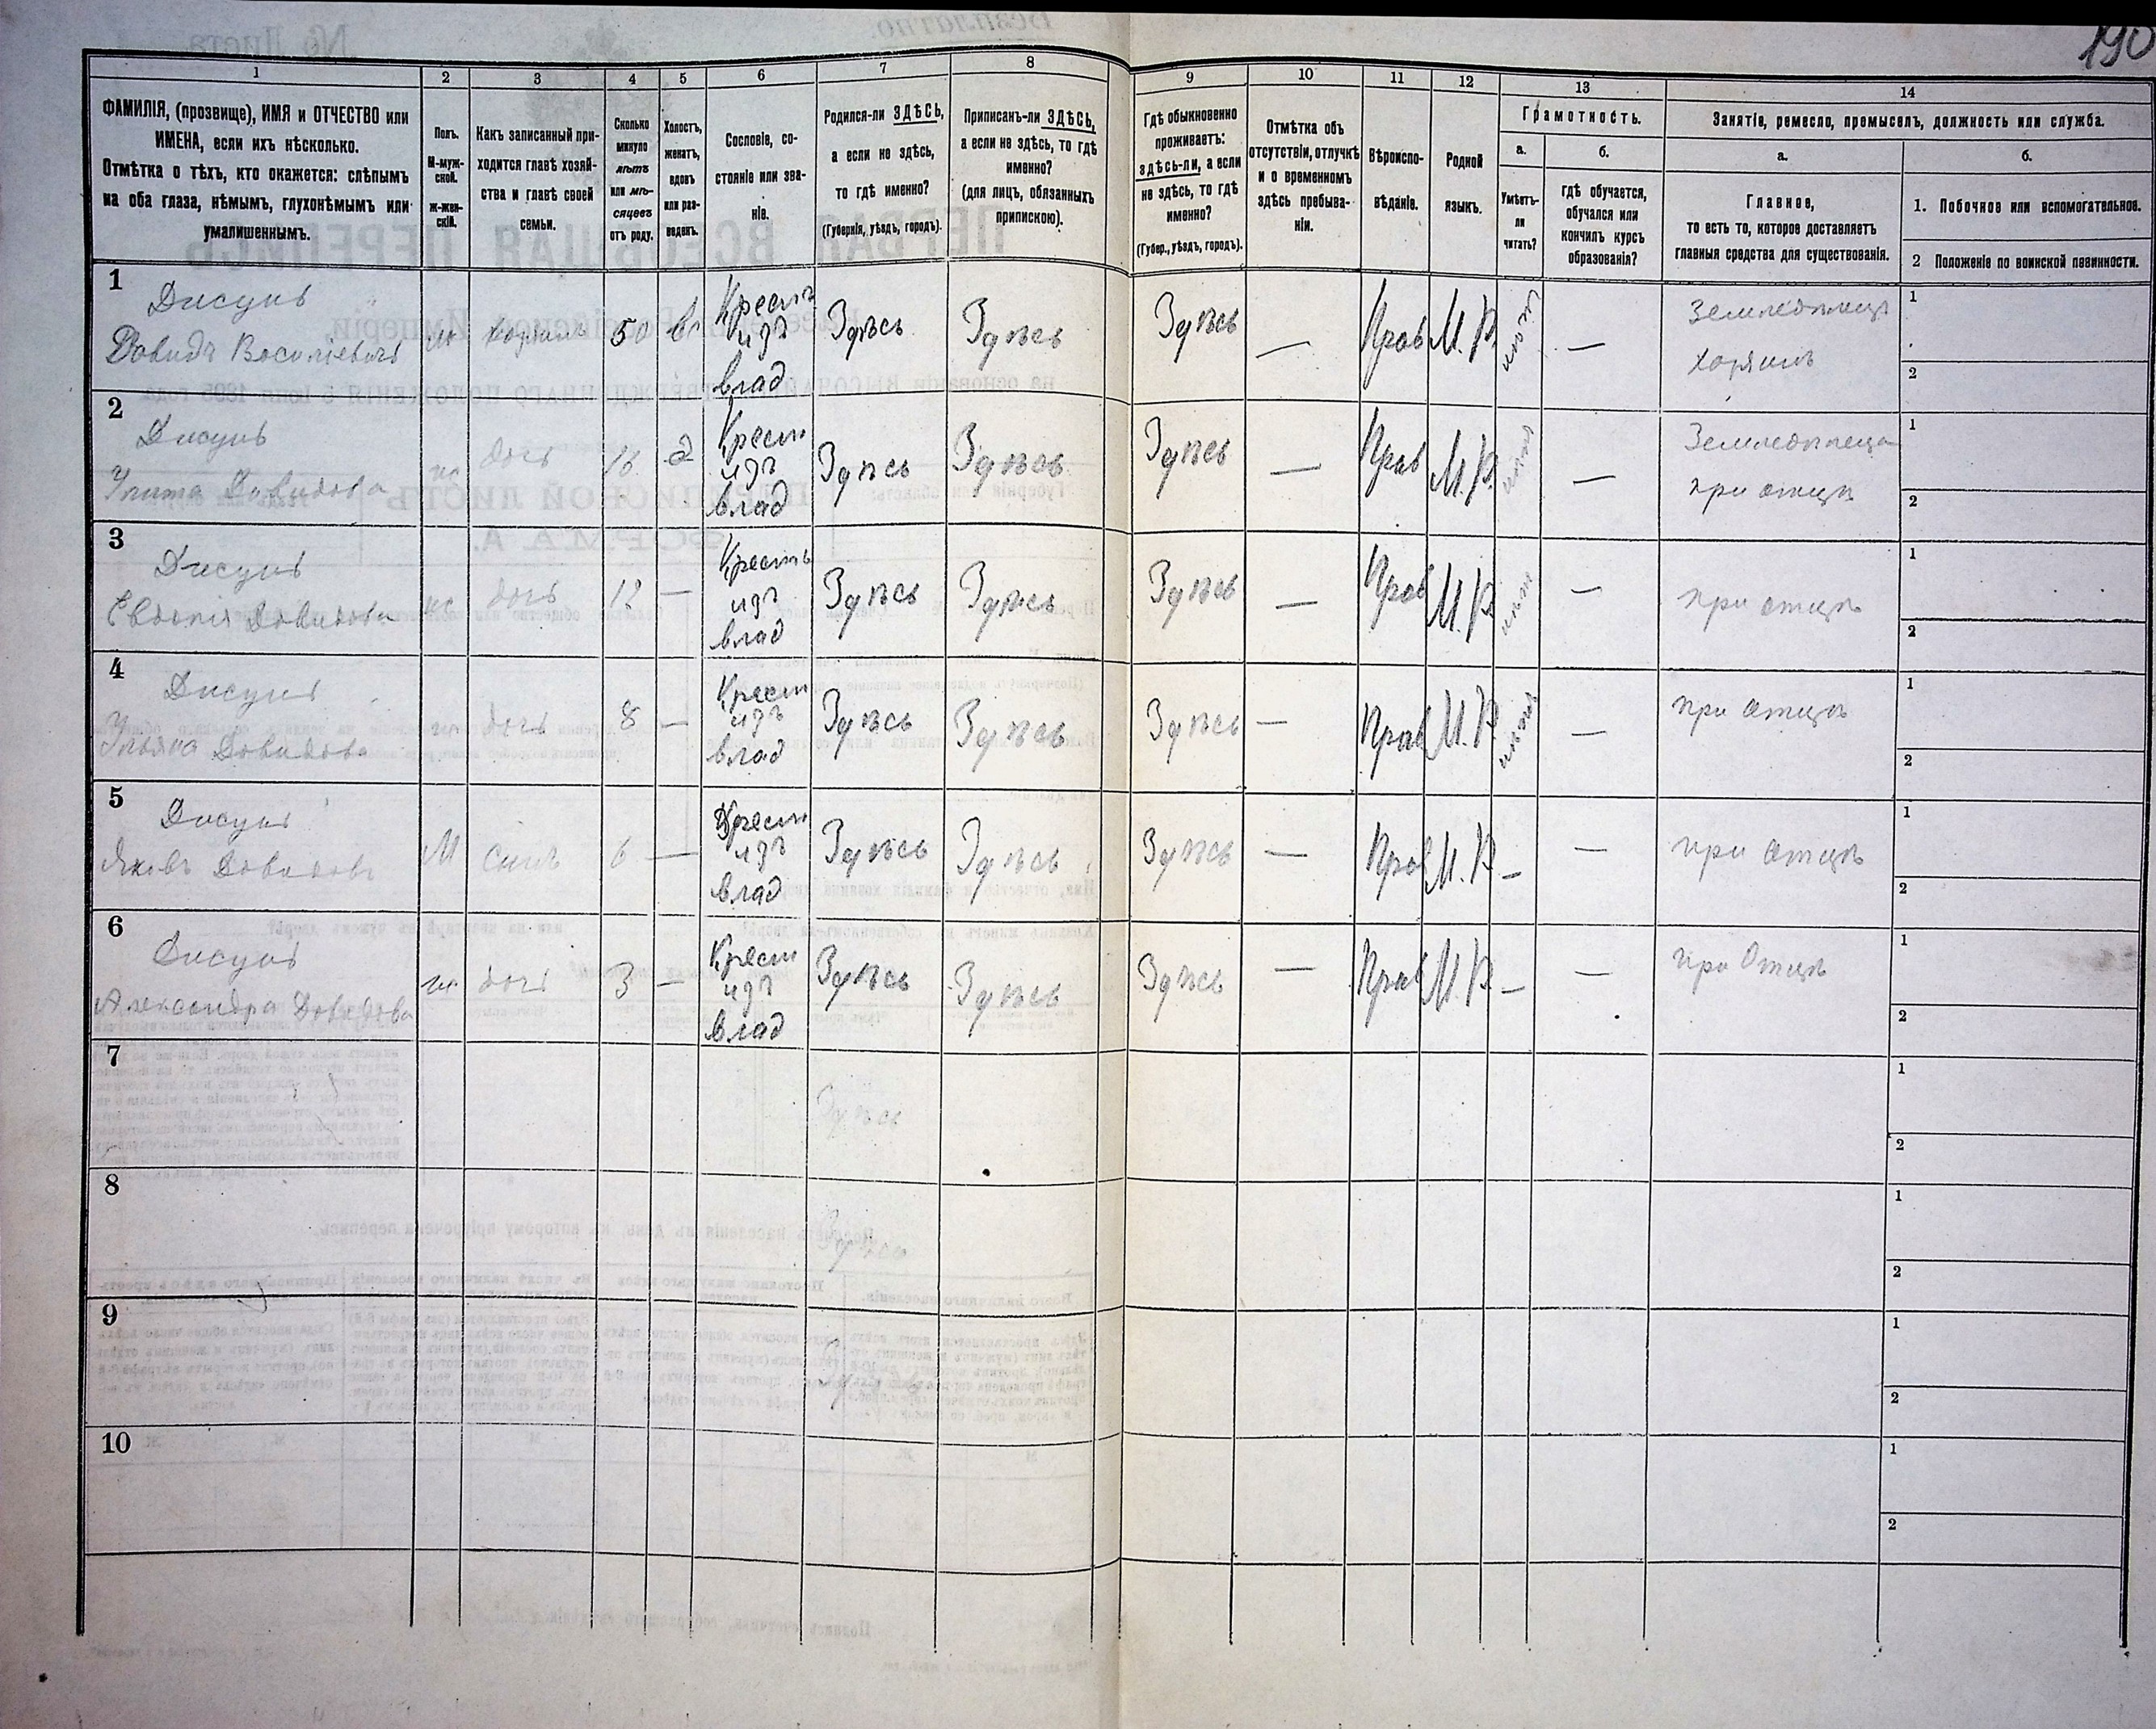 190
1
2
3
4
5
6
7
8
9
10
11
12
13
14
ФАМИЛІЯ, (прозвище), ИМЯ и ОТЧЕСТВО или
ИМЕНА, если ихъ нѣсколько.
Отмѣтка о тѣхъ, кто окажется: слѣпымъ
на оба глаза, нѣмымъ, глухонѣмымъ или
умалишеннымъ.
Полъ.
М-муж-
ской.
ж-жен-
скій.
Какъ записанный при-
ходится главѣ хозяй-
ства и главѣ своей
семьи.
Сколько
минуло
лѣтъ
или мѣ-
сяцевъ
отъ роду.
Холостъ,
женатъ,
вдовъ
или раз-
веденъ.
Сословіе, со-
стояніе или зва-
ніе.
Родился-ли ЗДѢСЬ,
а если не здѣсь,
то гдѣ именно?
(Губернія, уѣздъ, городъ).
Приписанъ-ли ЗДѢСЬ,
а если не здѣсь, то гдѣ
именно?
(для лицъ, обязанныхъ
припискою).
Гдѣ обыкновенно
проживаетъ:
ЗДѢСЬ-ЛИ, а если
не здѣсь, то гдѣ
именно?
(Губер., уѣздъ, городъ).
Отмѣтка объ
отсутствіи, отлучкѣ
и о временномъ
здѣсь пребыва-
ніи.
Вѣроиспо-
вѣданіе.
Родной
языкъ.
Грамотность.
а.
Умѣетъ-
ли
читать?
б.
гдѣ обучается,
обучался или
кончилъ курсъ
образованія?
Занятіе, ремесло, промыселъ, должность или служба.
а.
Главное,
то есть то, которое доставляетъ
главныя средства для существованія.
б.
1. Побочное или вспомогательное.
2 Положеніе по воинской повинности.
1
Дисунъ
Довидъ Василіевичъ
м
хозяинъ
50
вд
Крестъ
изъ
влад
Здѣсь
Здѣсь
Здѣсь
—
Прав
М. Р.
—
Земледѣлецъ
хозяинъ
1
2
2
Дисунъ
Улита Довидова
ж
дочь
16
д
Крестъ
изъ
влад
Здѣсь
Здѣсь
Здѣсь
—
Прав
М. Р.
—
Земледѣлеца
при отцѣ
1
2
3
Дисунъ
Довидова
ж
дочь
12
—
Крестъ
изъ
влад
Здѣсь
Здѣсь
Здѣсь
—
Прав
М. Р.
—
при отцѣ
1
2
4
Дисунъ
Ульяна Довидова
ж
дочь
8
—
Крест
изъ
влад
Здѣсь
Здѣсь
Здѣсь
—
Прав
М. Р.
—
при отцѣ
1
2
5
Дисунъ
Яковъ Довидовъ
М
сынъ
6
—
Крест
изъ
влад
Здѣсь
Здѣсь
Здѣсь
—
Прав
М. Р.
—
—
при отцѣ
1
2
6
Дисунъ
Александра Довидова
ж
дочь
3
—
Крест
изъ
влад
Здѣсь
Здѣсь
Здѣсь
—
Прав
М. Р.
—
—
при Отцѣ
1
2
7
Здѣсь
1
2
8
Здѣсь
1
2
9
1
2
10
1
2